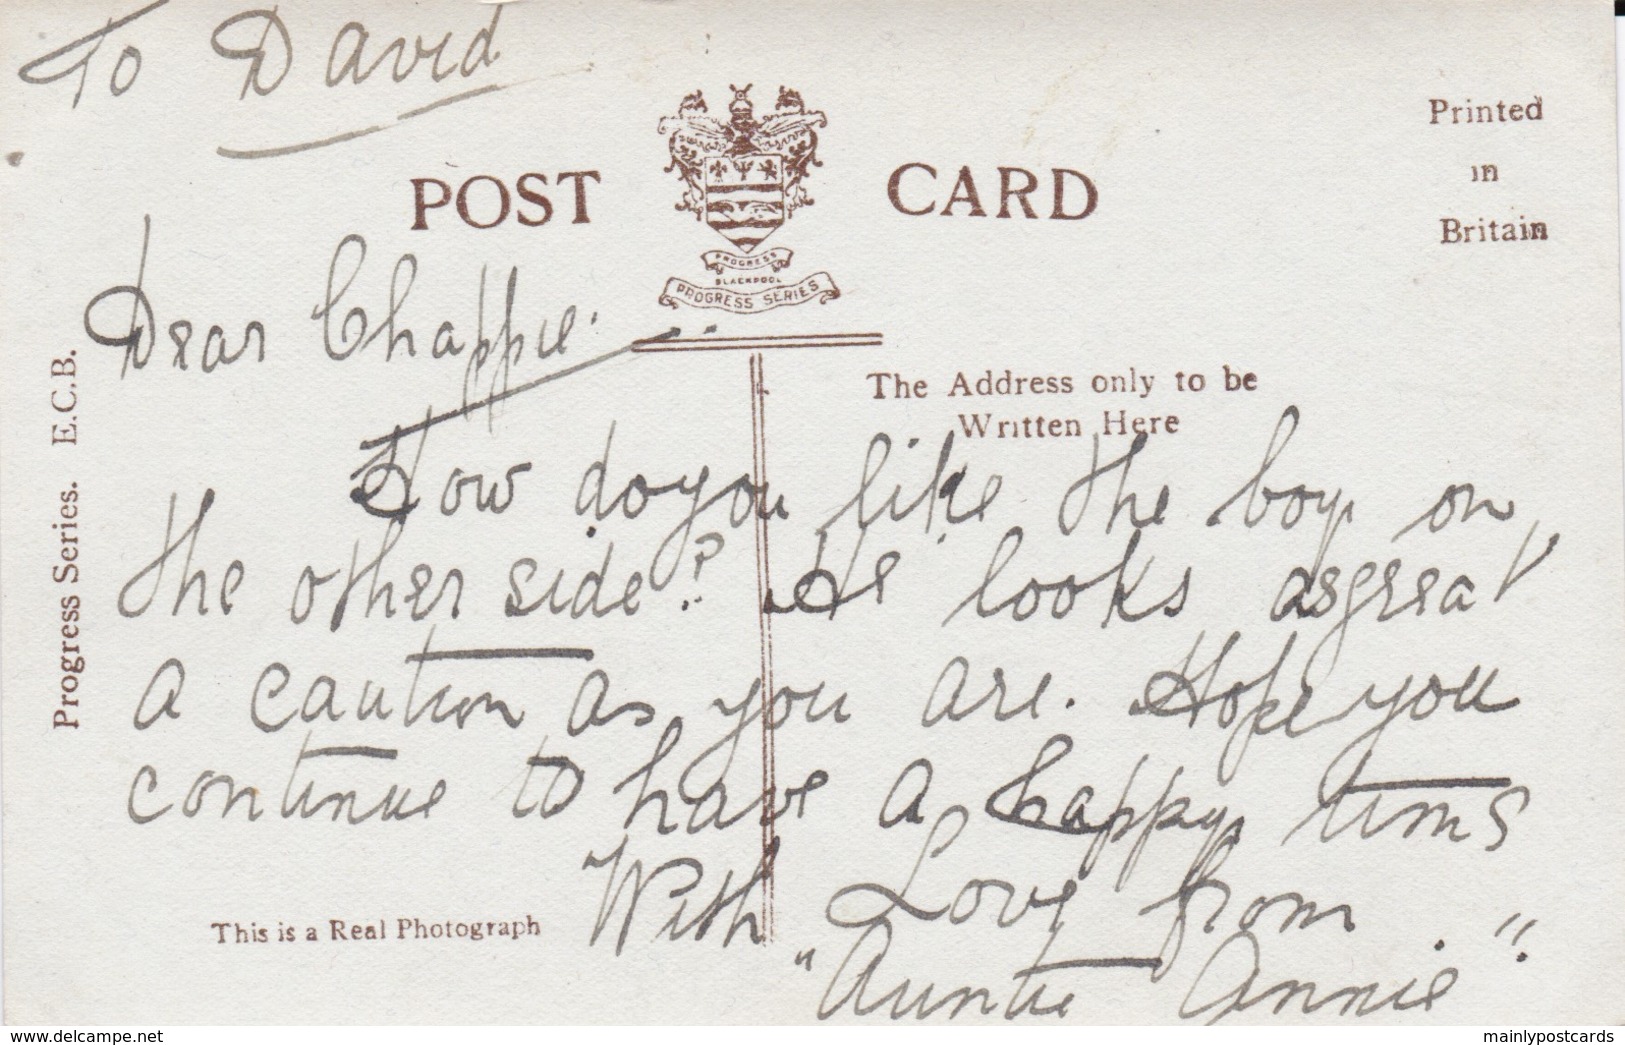 To David
POST CARD
PROGRESS
BLACKPOOL
PROGRESS SERIES
Printed
in
Britain
Dear Chappie.
The Address only to be
Written Here
Progress Series. E.C.B.
How do you like the boy on
the other side? He looks as great
a caution as you are. Hope you
continue to have a happy time
With Love from
"Auntie Annie".
This is a Real Photograph
delcampe.net
mainlypostcards